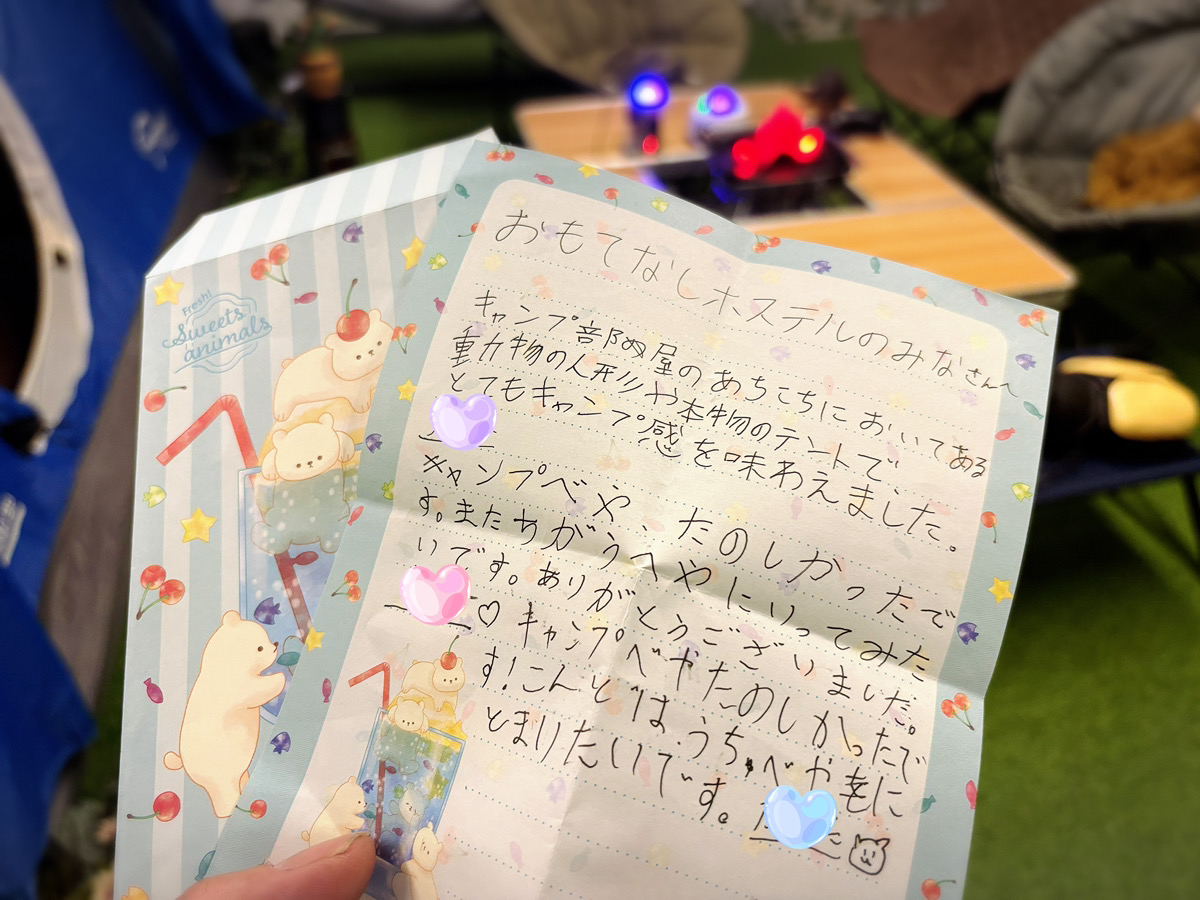 Fresh!
Sweets
animals
おもてなしホステルのみなさんへ
キャンプ部屋のあちこちにおいてある
動物の人形や本物のテントで
とてもキャンプ感を味わえました。
キャンプべや、たのしかったで
す。またちがうへやにいってみた
いです。ありがとうございました。
♡キャンプべやたのしかったで
す!こんどは、うちゅべやに
とまりたいです。